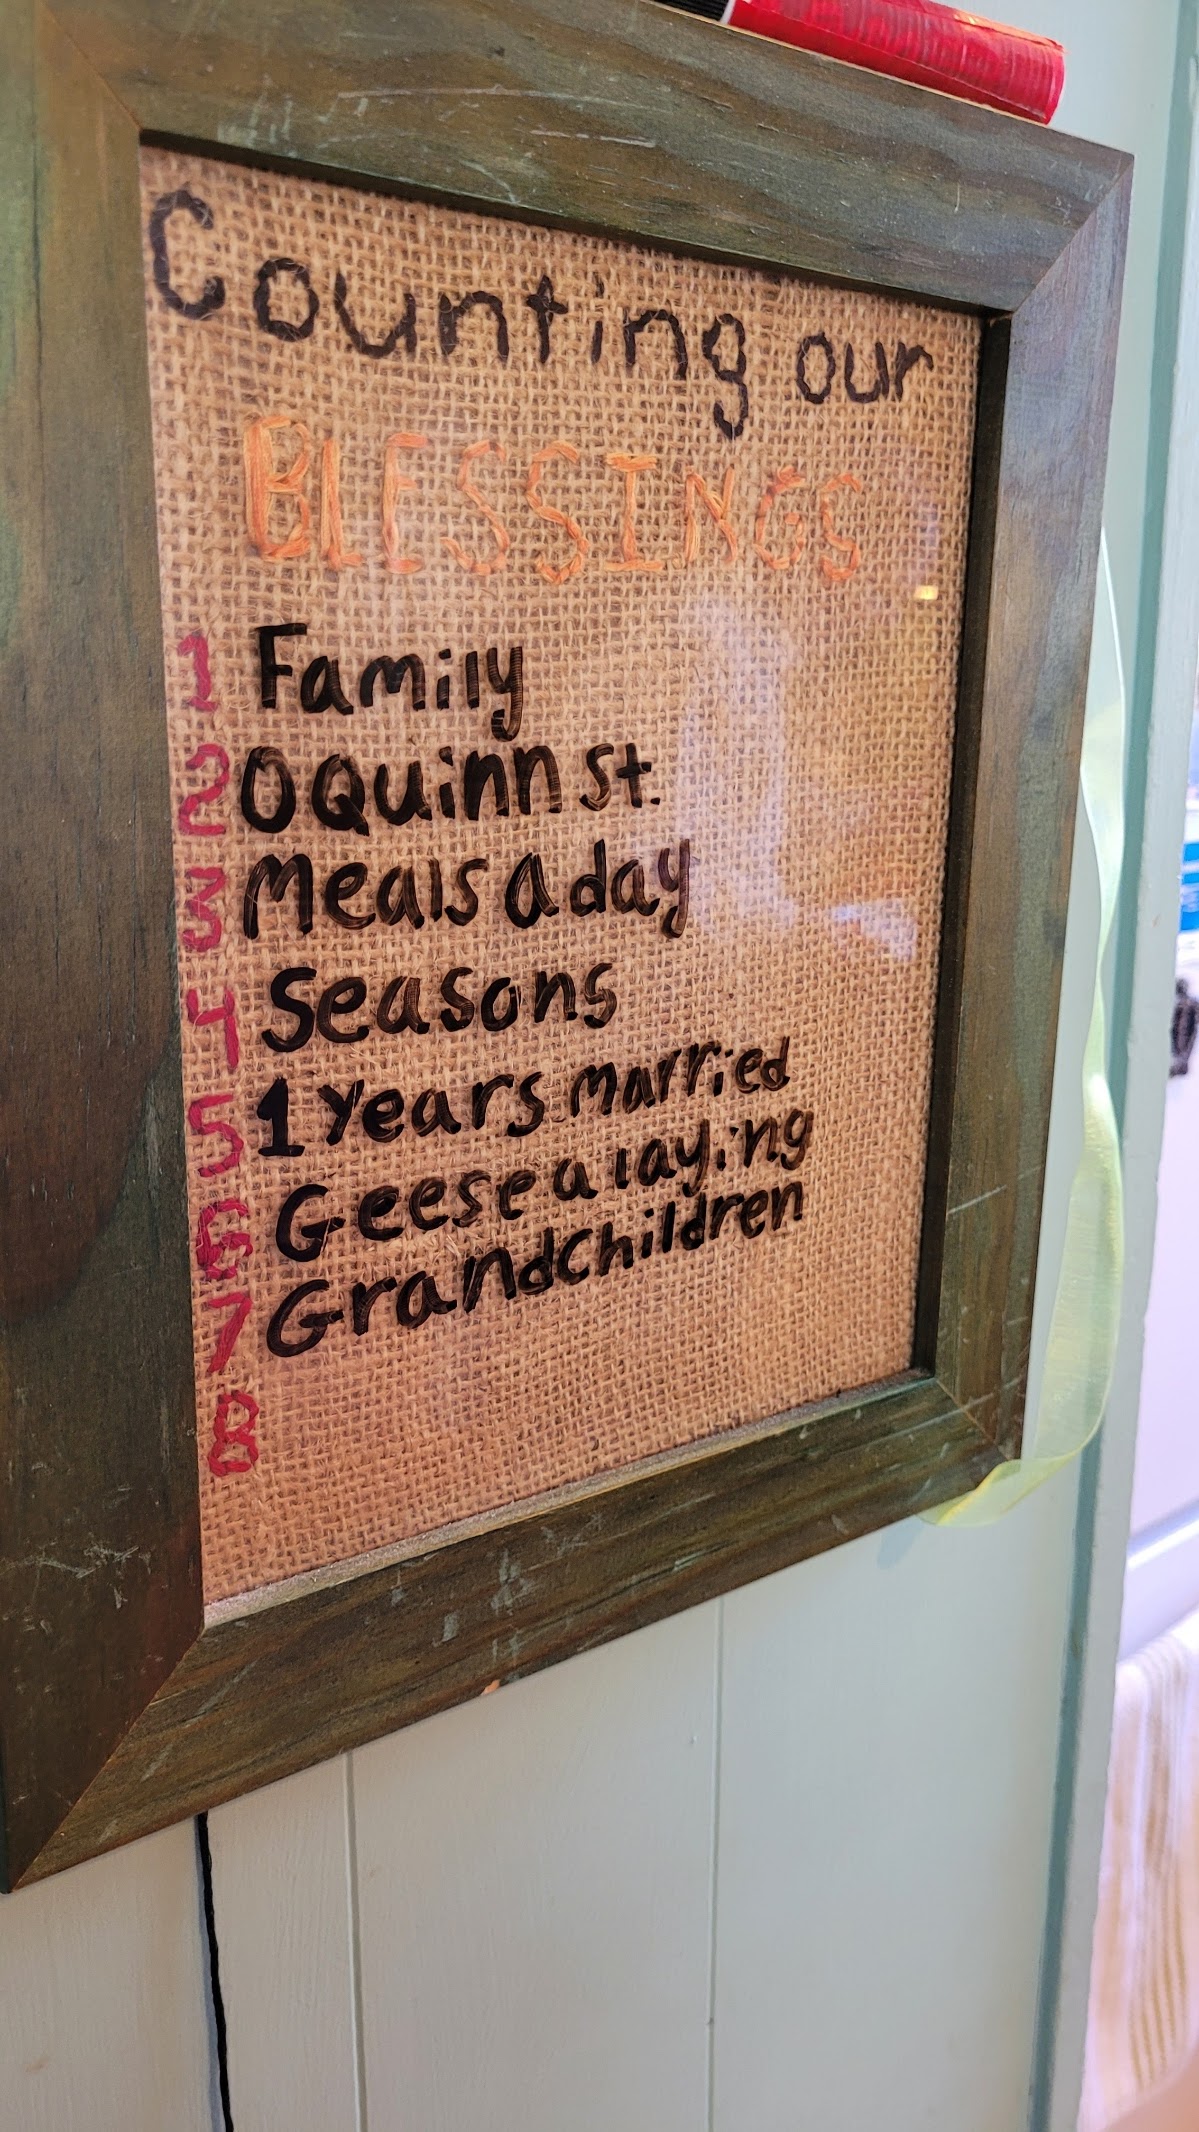 Counting our
BLESSINGS
1 Family
2 0 Quinn st.
3 Meals a day
4 Seasons
5 1 years married
6 Geese a laying
7 Grandchildren
8